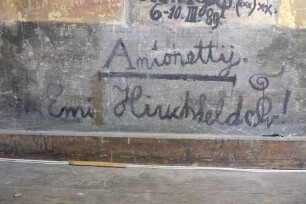 6-10.III.89.
Anionettij.
Emi Hirschfeldová!